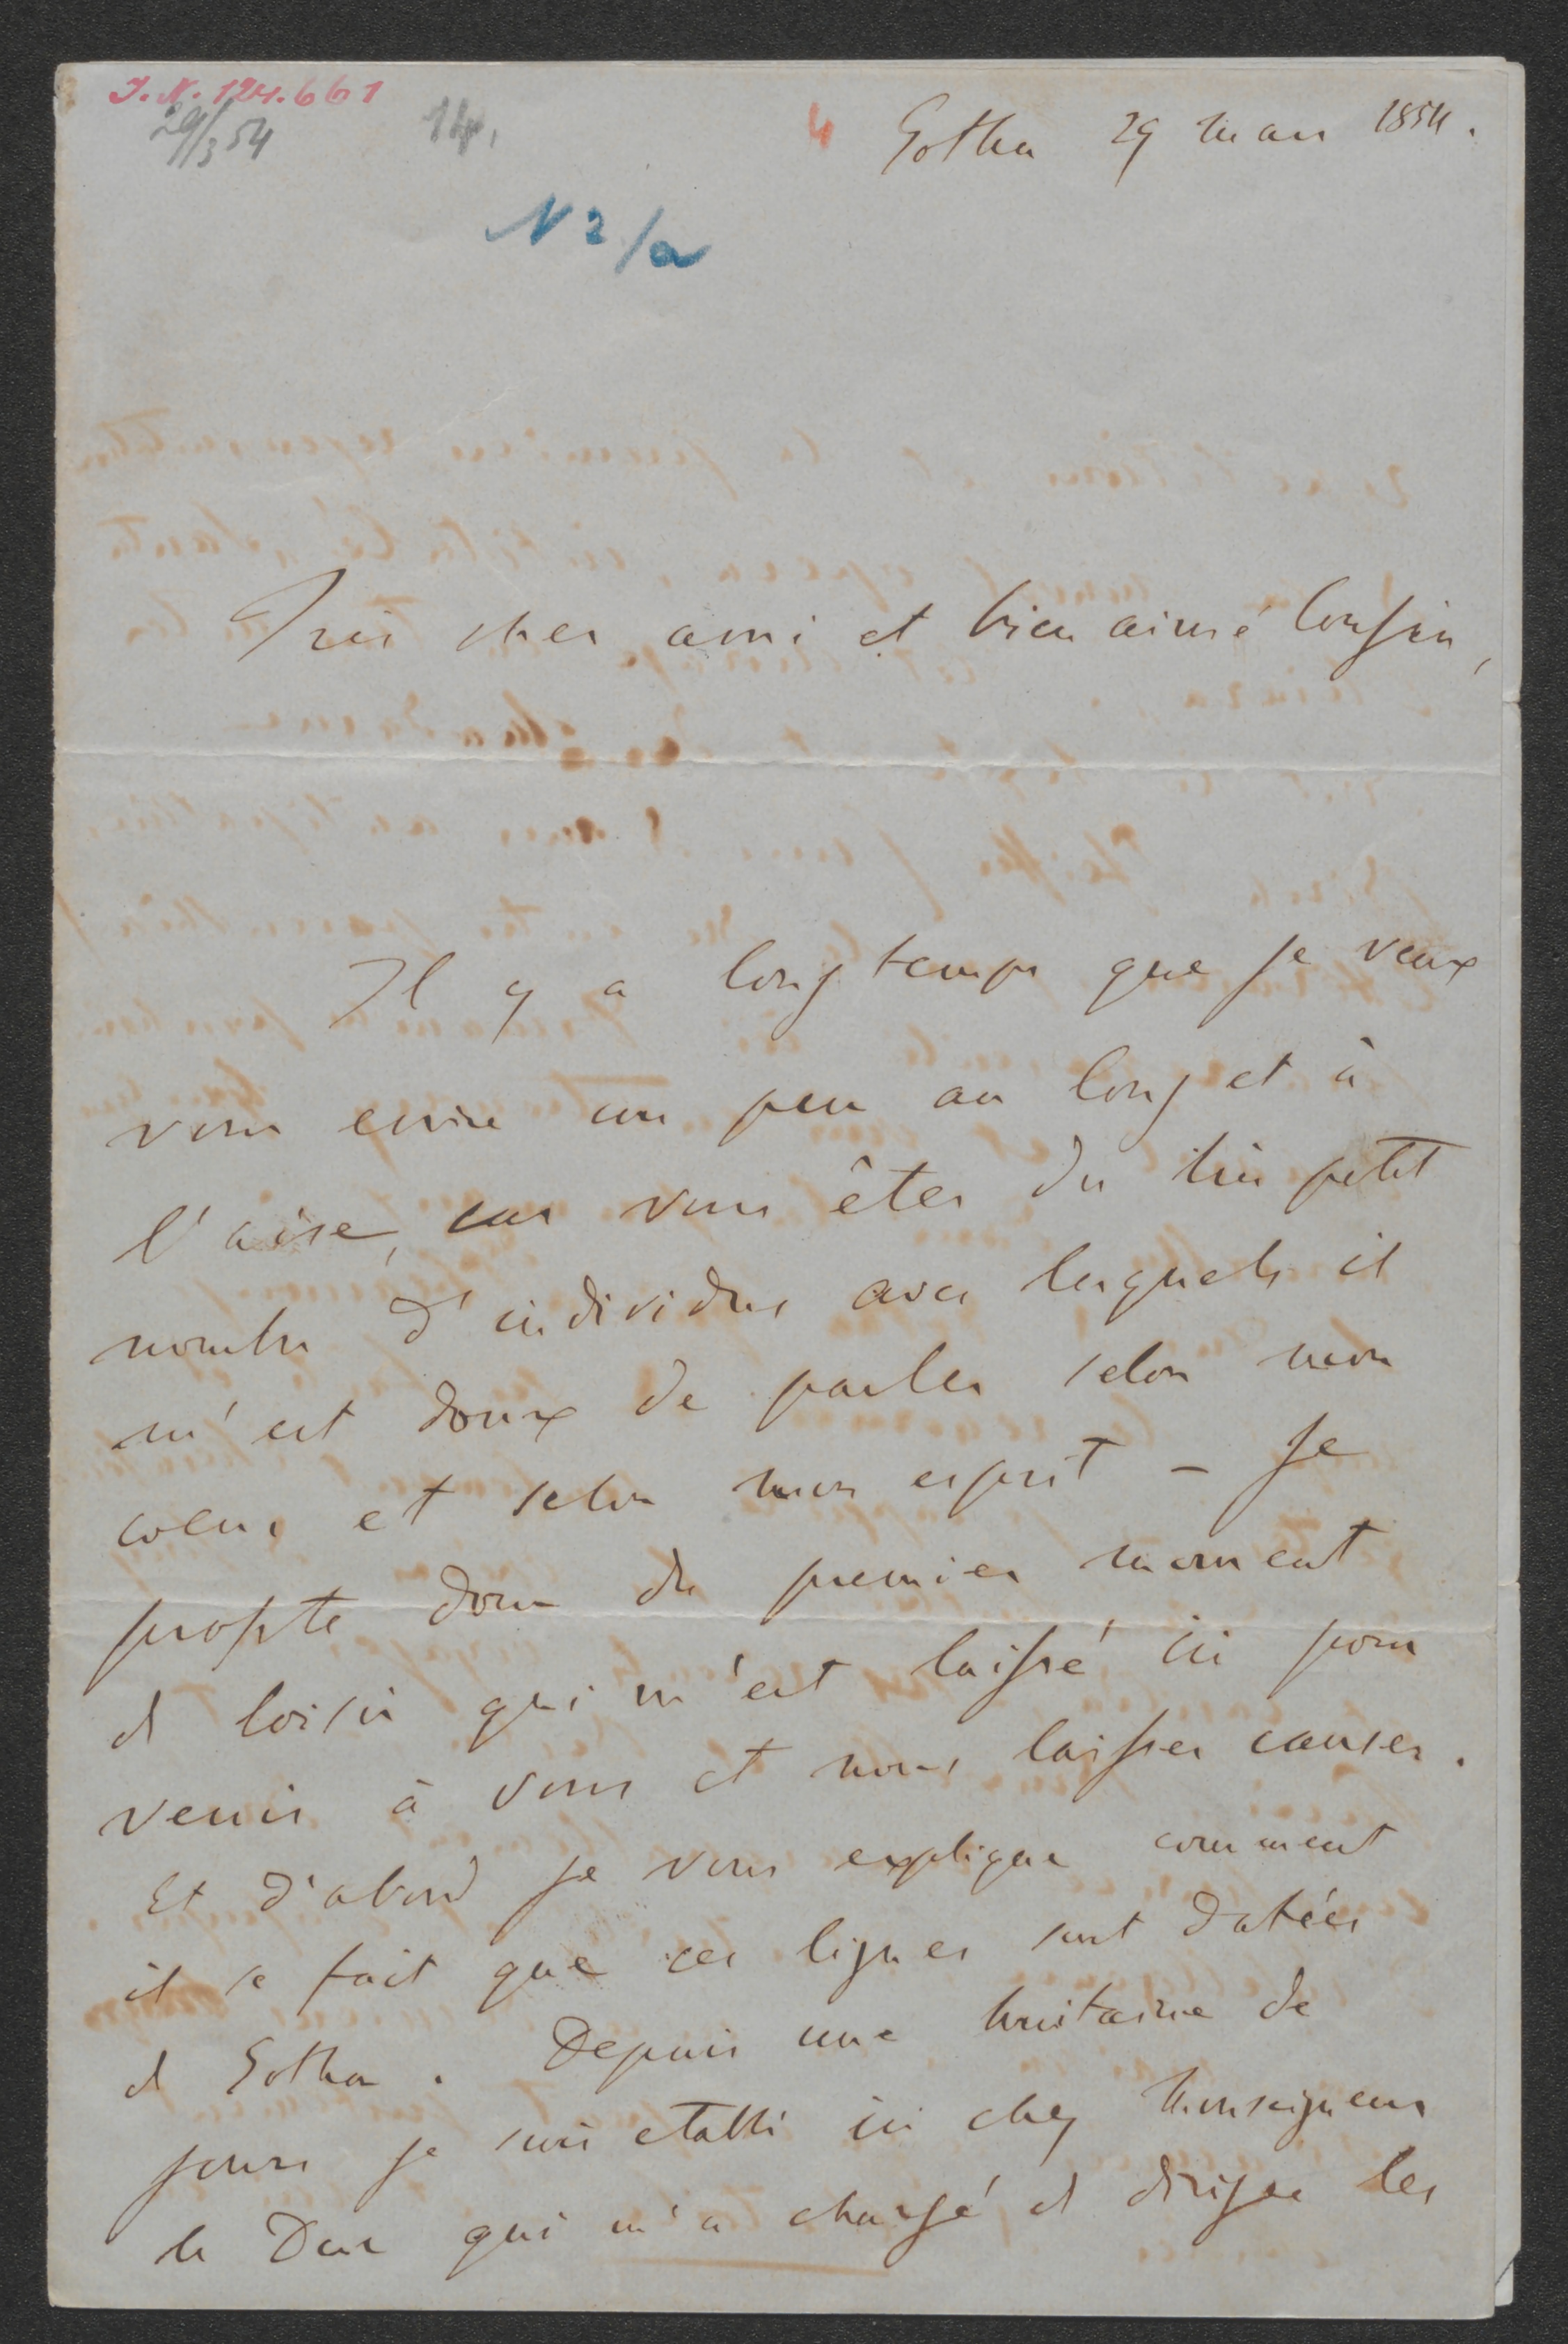 I.N. 124.661
29/3 54
14,
4
Gotha 29 Mars 1854.
N 2/a
Très cher ami et bien aimé Cousin,
Il y a longtemps que je veux
vous ecrire un peu au long et à
l'aise, car vous êtes du très petit
nombre d'individus avec lesquels il
m'est doux de parler selon mon
coeur et selon mon esprit – Je
profite donc du premier moment
de loisir qui m'est laissé ici pour
venir à vous et nous laisser causer.
Et d'abord je vous explique comment
il se fait que ces lignes sont datées
de Gotha. Depuis une huitaine de
jours je suis etabli ici chez Monseigneur
le Duc qui m'a chargé de diriger les